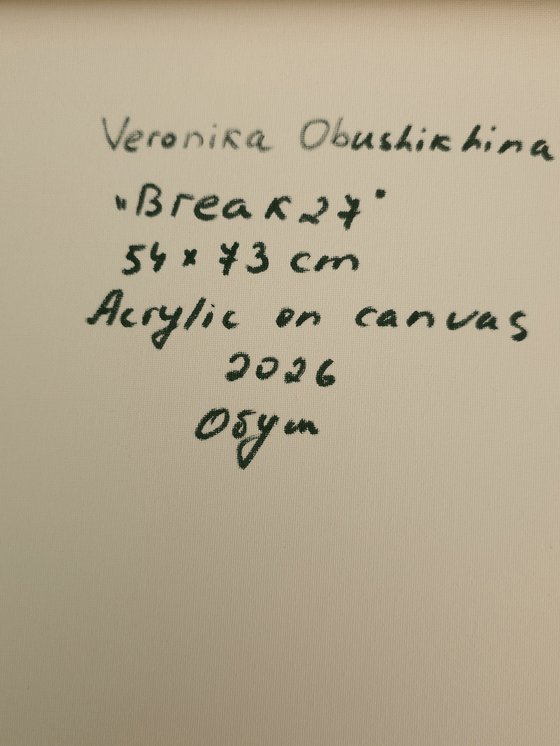 Veronika Obushikhina
"Break 27"
54 x 73 cm
Acrylic on canvas
2026
Обуш